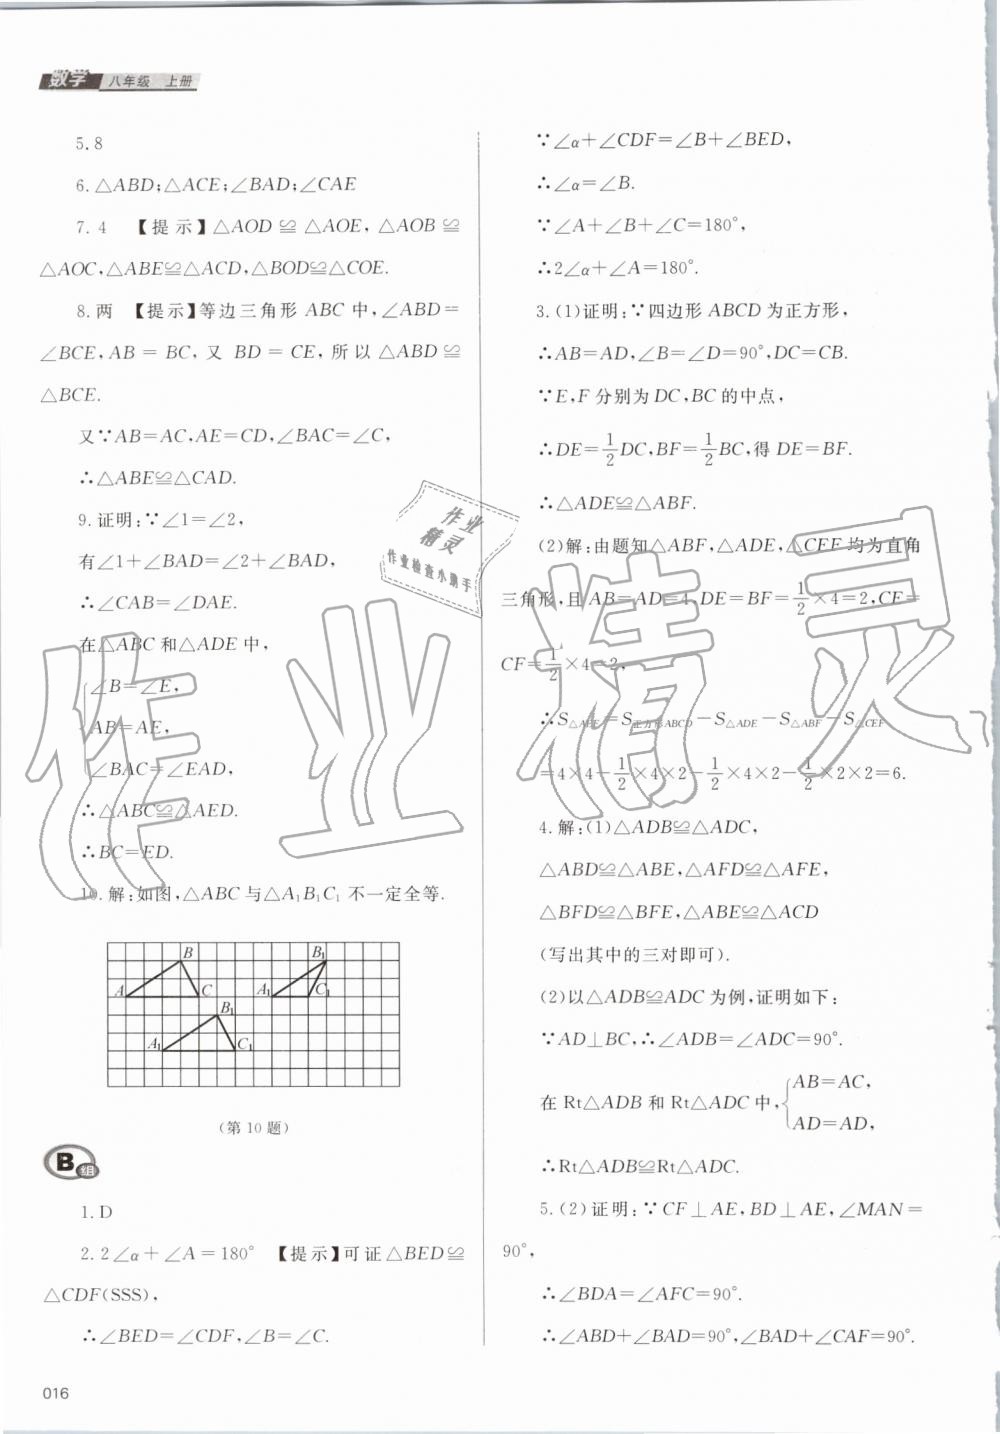 数学 八年级 上册
5.8
6.△ABD;△ACE;∠BAD;∠CAE
7.4 【提示】△AOD≌△AOE,△AOB≌
△AOC,△ABE≌△ACD,△BOD≌△COE.
8.两 【提示】等边三角形 ABC 中,∠ABD=
∠BCE,AB=BC,又 BD=CE,所以△ABD≌
△BCE.
又∵AB=AC,AE=CD,∠BAC=∠C,
∴△ABE≌△CAD.
9.证明:∵∠1=∠2,
有∠1+∠BAD=∠2+∠BAD,
∴∠CAB=∠DAE.
在△ABC 和△ADE 中,
∠B=∠E,
AB=AE,
∠BAC=∠EAD,
∴△ABC≌△AED.
∴BC=ED.
10.解:如图,△ABC 与△A₁B₁C₁ 不一定全等.
B B₁
A C A₁ C₁
B₁
A₁ C₁
(第 10 题)
B组
1.D
2.2∠α+∠A=180° 【提示】可证△BED≌
△CDF(SSS),
∴∠BED=∠CDF,∠B=∠C.
016
∵∠α+∠CDF=∠B+∠BED,
∴∠α=∠B.
∵∠A+∠B+∠C=180°,
∴2∠α+∠A=180°.
3.(1)证明:∵四边形 ABCD 为正方形,
∴AB=AD,∠B=∠D=90°,DC=CB.
∵E,F 分别为 DC,BC 的中点,
∴DE=1/2DC,BF=1/2BC,得 DE=BF.
∴△ADE≌△ABF.
(2)解:由题知△ABF,△ADE,△CEF 均为直角
三角形,且 AB=AD=4,DE=BF=1/2×4=2,CE=
CF=1/2×4=2,
∴S△AEF=S正方形ABCD-S△ADE-S△ABF-S△CEF
=4×4-1/2×4×2-1/2×4×2-1/2×2×2=6.
4.解:(1)△ADB≌△ADC,
△ABD≌△ABE,△AFD≌△AFE,
△BFD≌△BFE,△ABE≌△ACD
(写出其中的三对即可).
(2)以△ADB≌ADC 为例,证明如下:
∵AD⊥BC,∴∠ADB=∠ADC=90°.
在 Rt△ADB 和 Rt△ADC 中,{AB=AC,
AD=AD,
∴Rt△ADB≌Rt△ADC.
5.(2)证明:∵CF⊥AE,BD⊥AE,∠MAN=
90°,
∴∠BDA=∠AFC=90°.
∴∠ABD+∠BAD=90°,∠BAD+∠CAF=90°.
作业
精灵
作业检查小助手
作业精灵